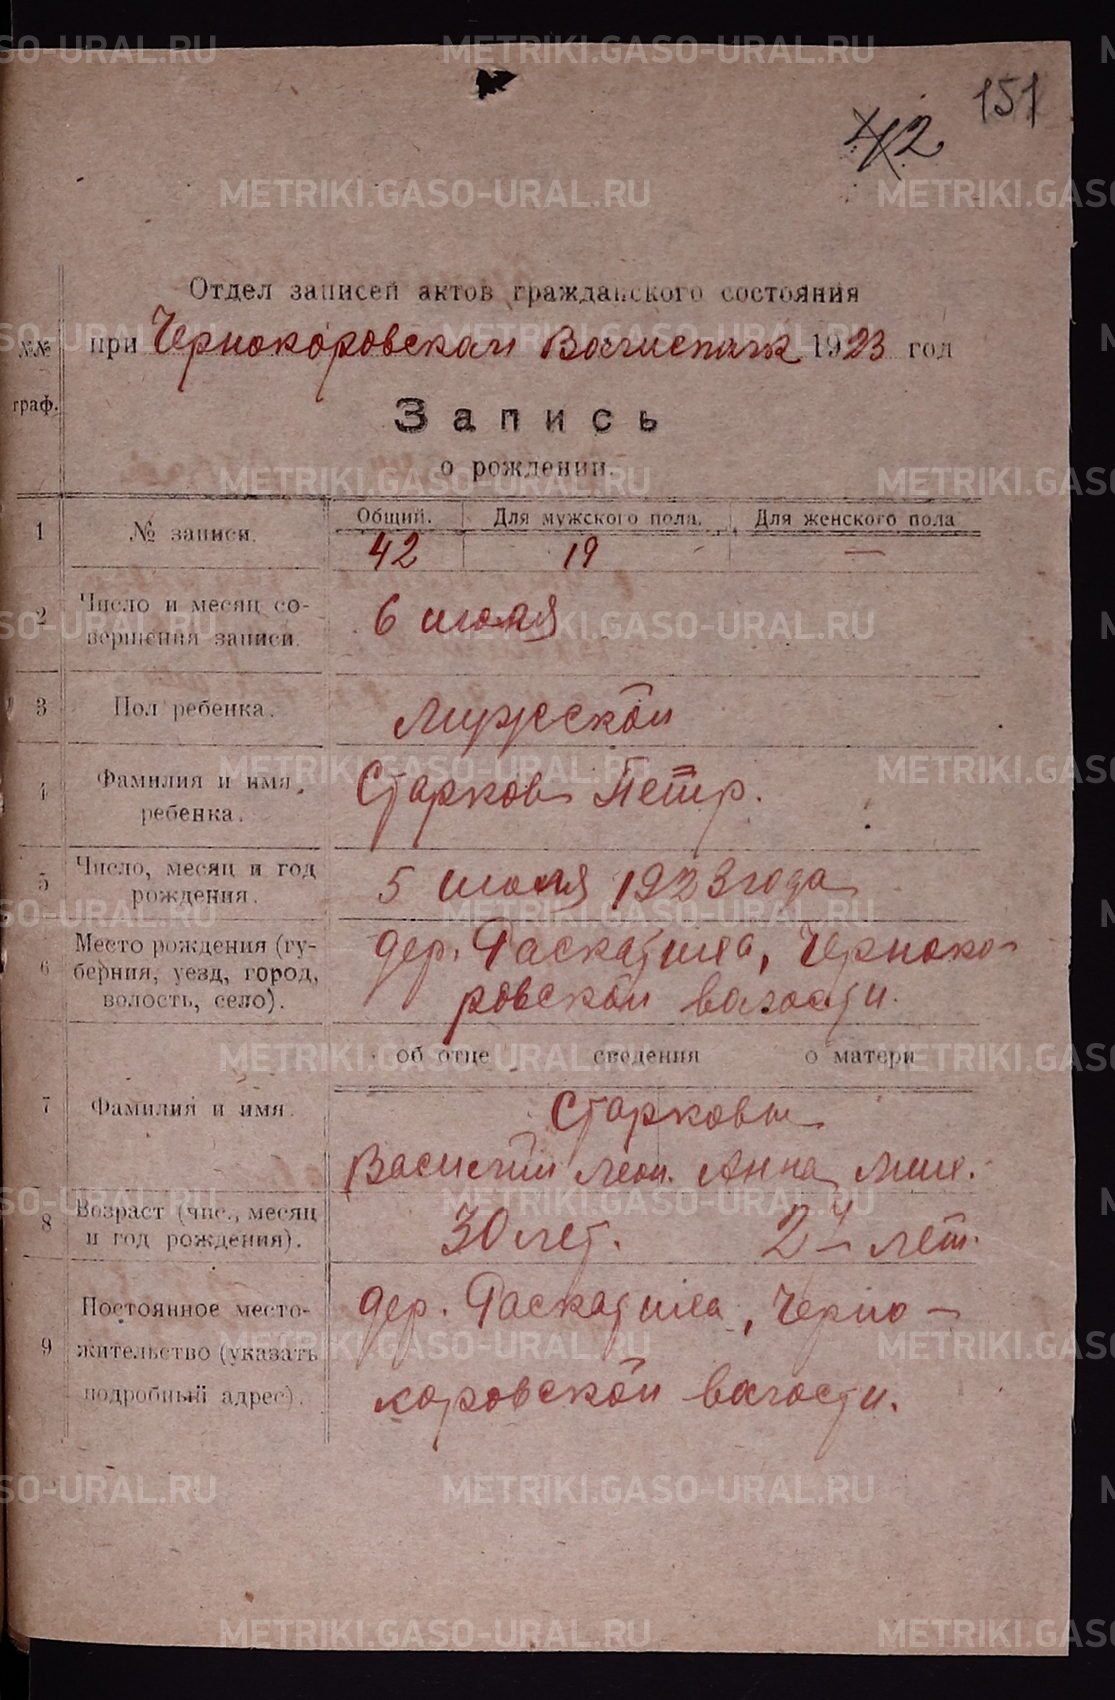 151
42
Отдел записей актов гражданского состояния
при Чернокоровском Волисполк 1923 год
№№ граф.
Запись
о рождении.
1 № записи. Общий. Для мужского пола. Для женского пола
42 19 —
2 Число и месяц со-
вершения записи. 6 июля
3 Пол ребенка. Мужской
4 Фамилия и имя
ребенка. Старков Петр.
5 Число, месяц и год
рождения. 5 июля 1923 года
6 Место рождения (гу-
берния, уезд, город,
волость, село). дер. Раскатиха, Черноко-
ровской волости.
об отце сведения о матери
7 Фамилия и имя. Старковы
Василий Леон. Анна Мих.
8 Возраст (чис., месяц
и год рождения). 30 лет. лет.
9 Постоянное место-
жительство (указать
подробный адрес). дер. Раскатиха, Черно-
коровской волости.
METRIKI.GASO-URAL.RU